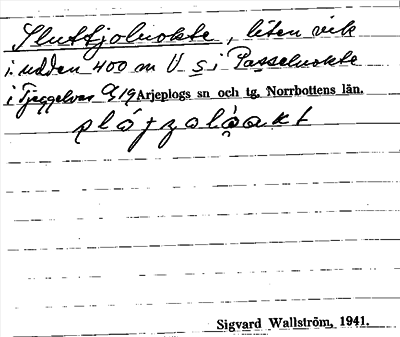 Sluttjoluokte, liten vik
i udden 400 m V s i Passeluokte
i Tjeggelvas Arjeplogs sn och tg, Norrbottens län.
Sigvard Wallström, 1941.